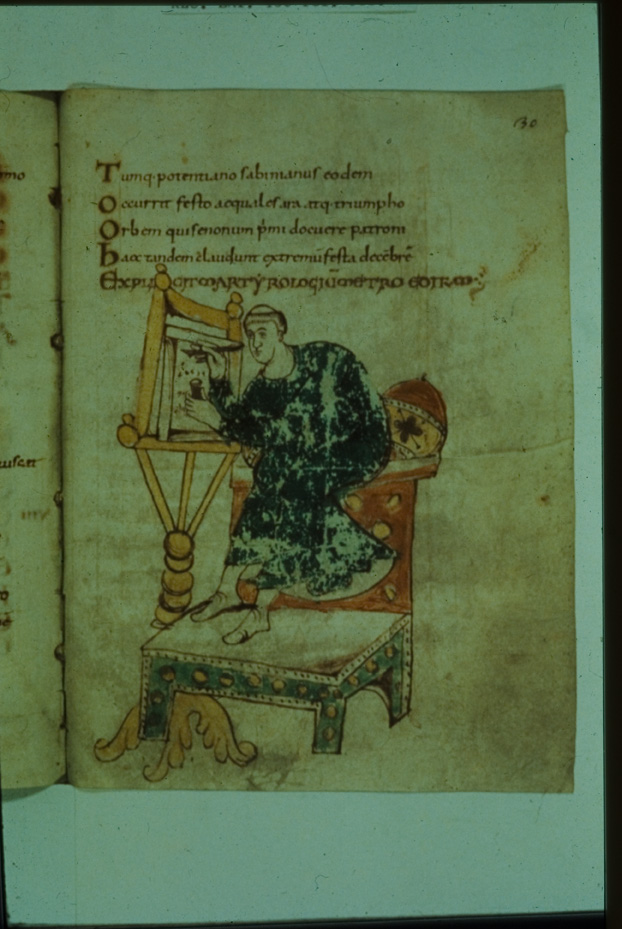 130
Tumq. potentiano sabinianus eodem
Occurrit festo aequales ara atq. triumpho
Orbem qui senonum p̄mi docuere patroni
haec tandem claudunt extremū festa decēbrē
EXPLICIT MARTYROLOGIŪ METRO EDITUM